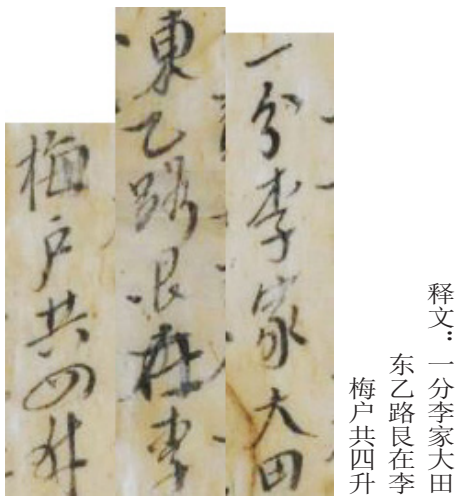 一分李家大田
東乙路艮在李
梅户共四升
释文：一分李家大田
东乙路艮在李
梅户共四升